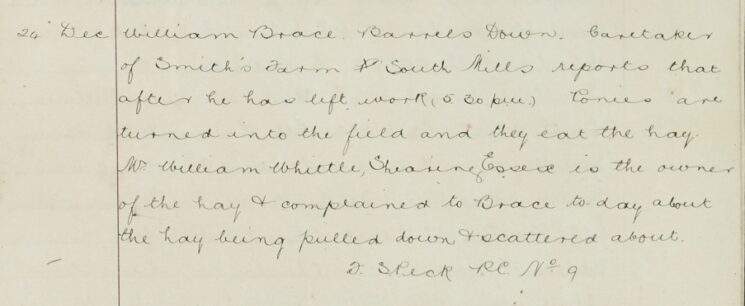 24 Dec William Brace. Barrels Down. Caretaker
of Smith's Farm & South Mills reports that
after he has left work (5.30 pm.) Ponies are
turned into the field and they eat the hay.
Mr William Whittle, Shearing Essex is the owner
of the hay & complained to Brace to day about
the hay being pulled down & scattered about.
F. Speck P.C. No 9